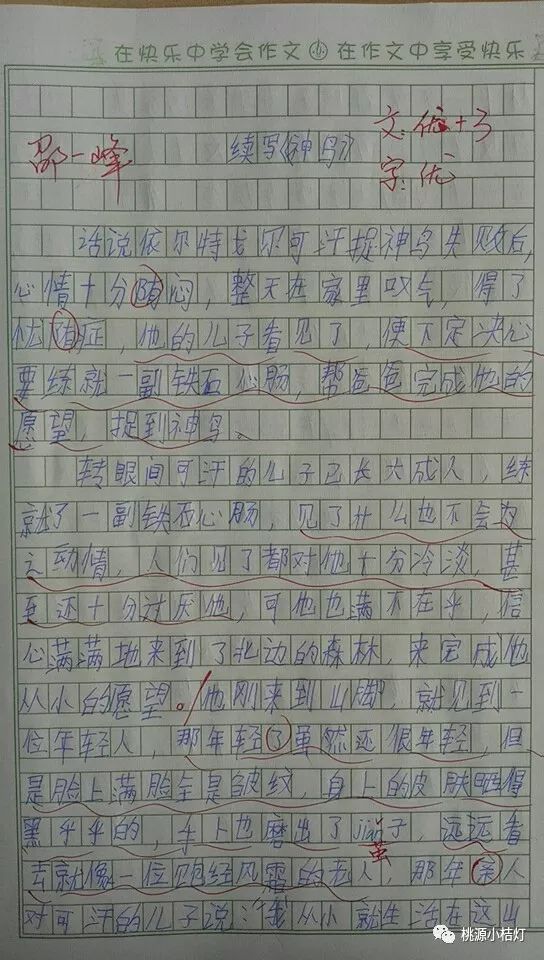 在快乐中学会作文 在作文中享受快乐
文:优+3
邵一峰 续写《神鸟》
字:优
话说依尔特戈尔可汗捉神鸟失败后,
心情十分陏闷,整天在家里叹气,得了
忧陏症,他的儿子看见了,便下定决心
要练就一副铁石心肠,帮爸爸完成他的
愿望,捉到神鸟。
转眼间可汗的儿子已长大成人,练
就了一副铁石心肠,见了什么也不会为
之动情,人们见了都对他十分冷淡,甚
至还十分讨厌他,可他也满不在乎,信
心满满地来到了北边的森林,来完成他
从小的愿望。他刚来到山脚,就见到一
位年轻人,那年轻了虽然还很年轻,但
是脸上满脸全是皱纹,身上的皮肤晒得
黑乎乎的,手上也磨出了jiǎn子,远远看
茧
去就像一位饱经风霜的老人,那年亲人
对可汗的儿子说:“我从小就生活在这山
桃源小桔灯